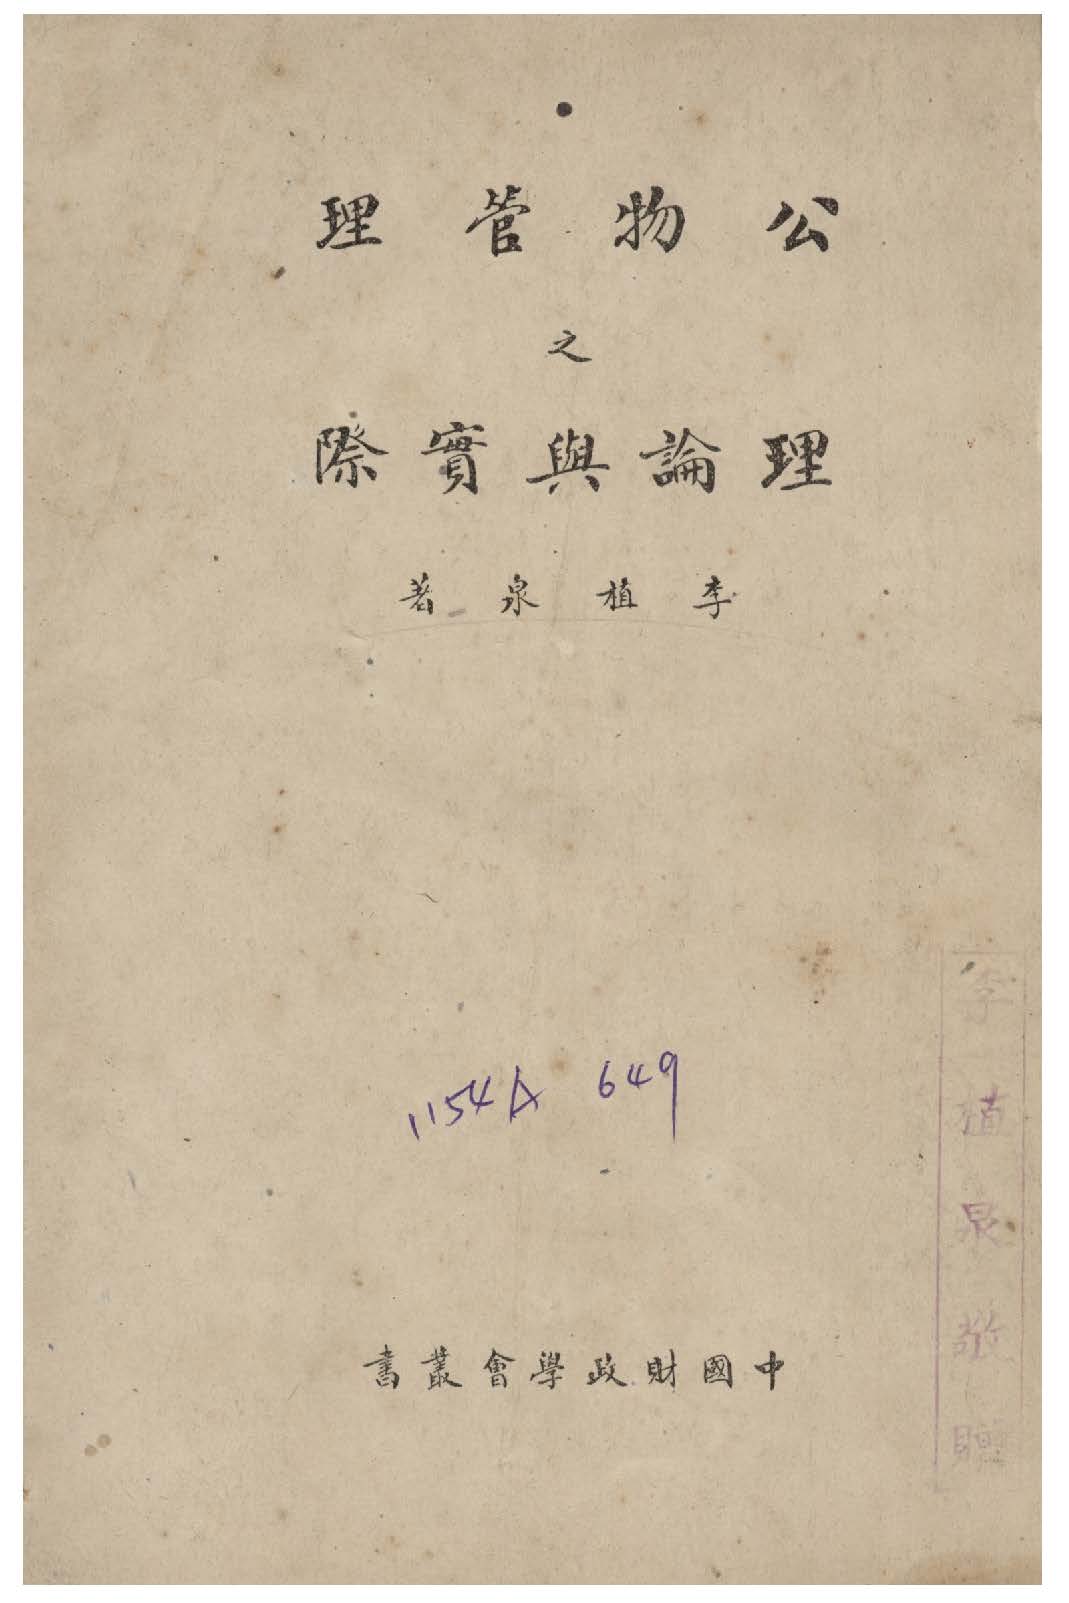 公物管理
之
理論與實際
李植泉著
1154A 649
李植泉敬贈
中國財政學會叢書